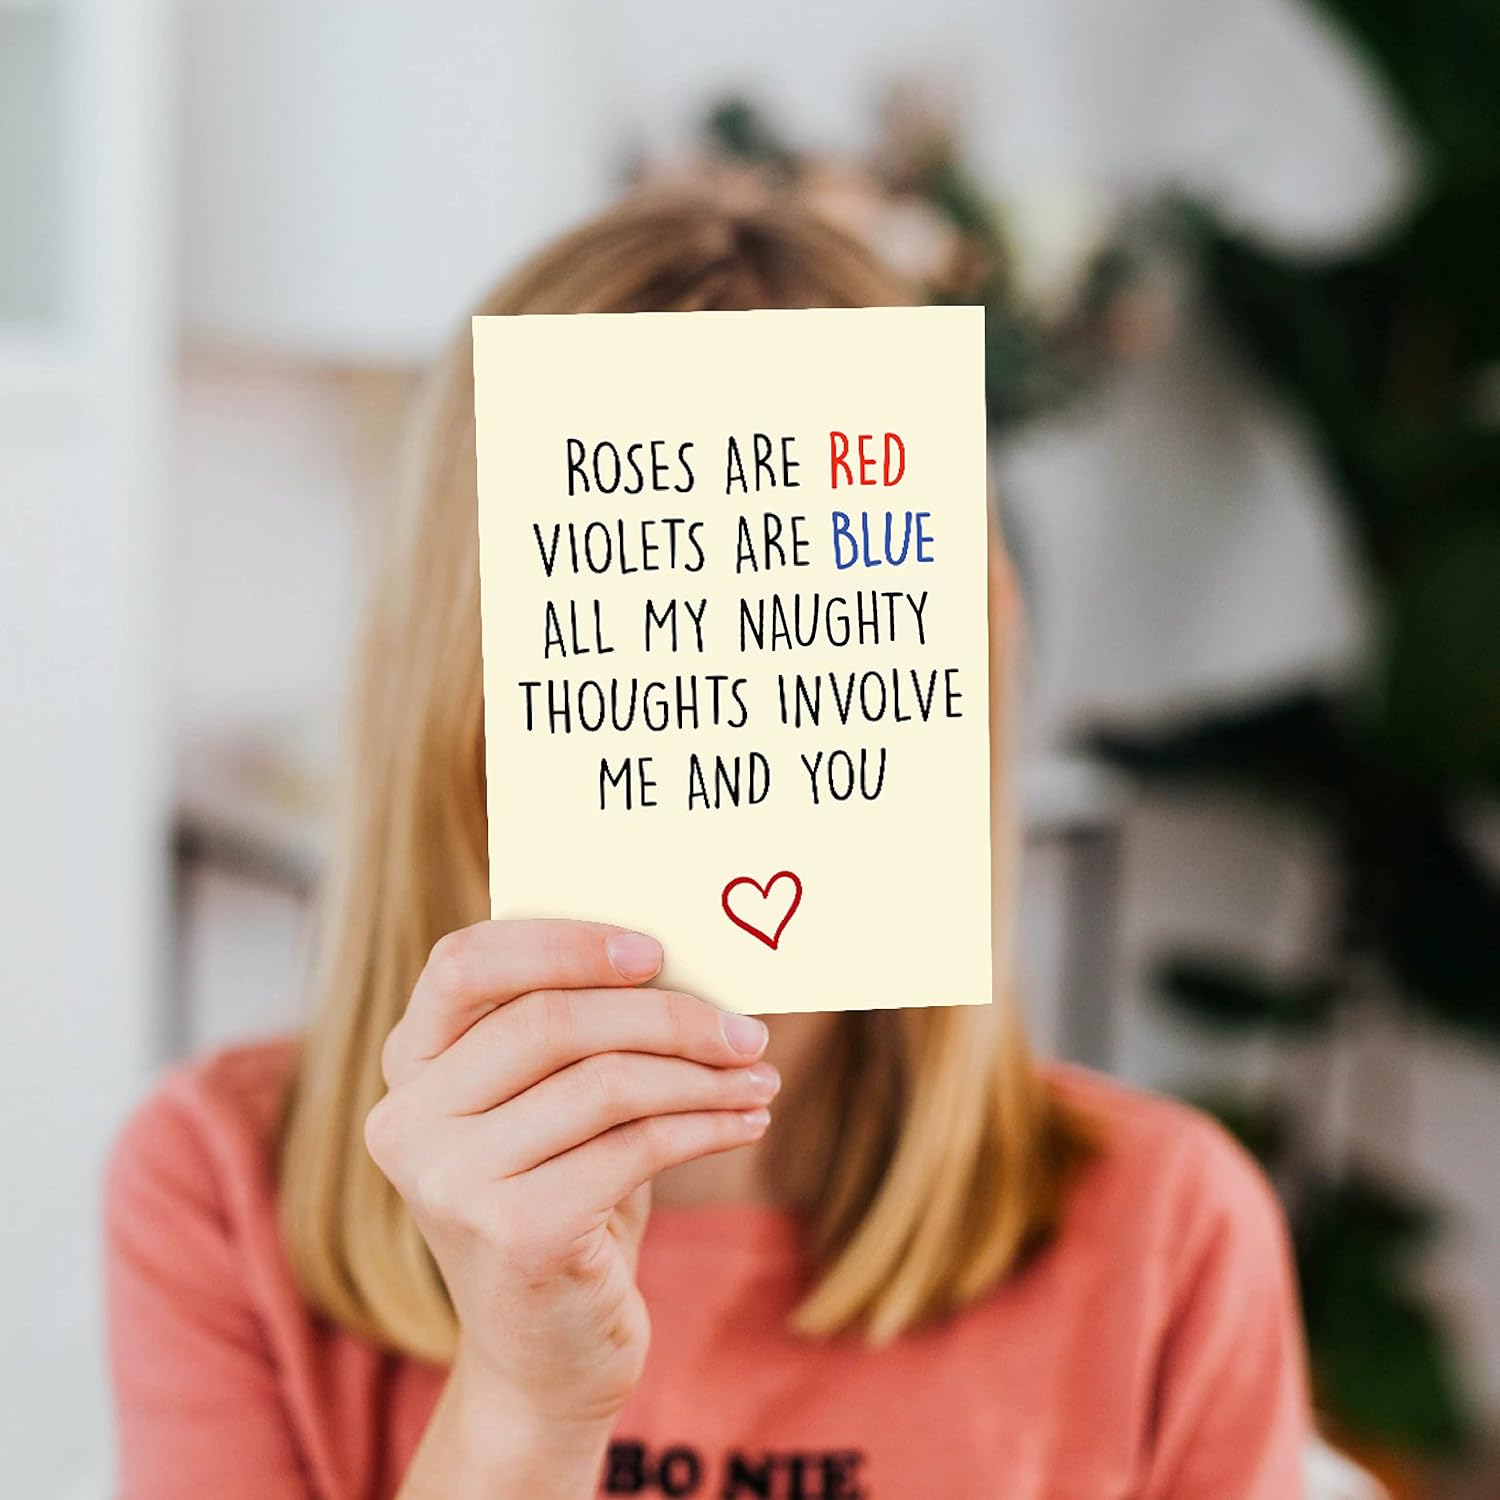 ROSES ARE RED
VIOLETS ARE BLUE
ALL MY NAUGHTY
THOUGHTS INVOLVE
ME AND YOU
BO NIE